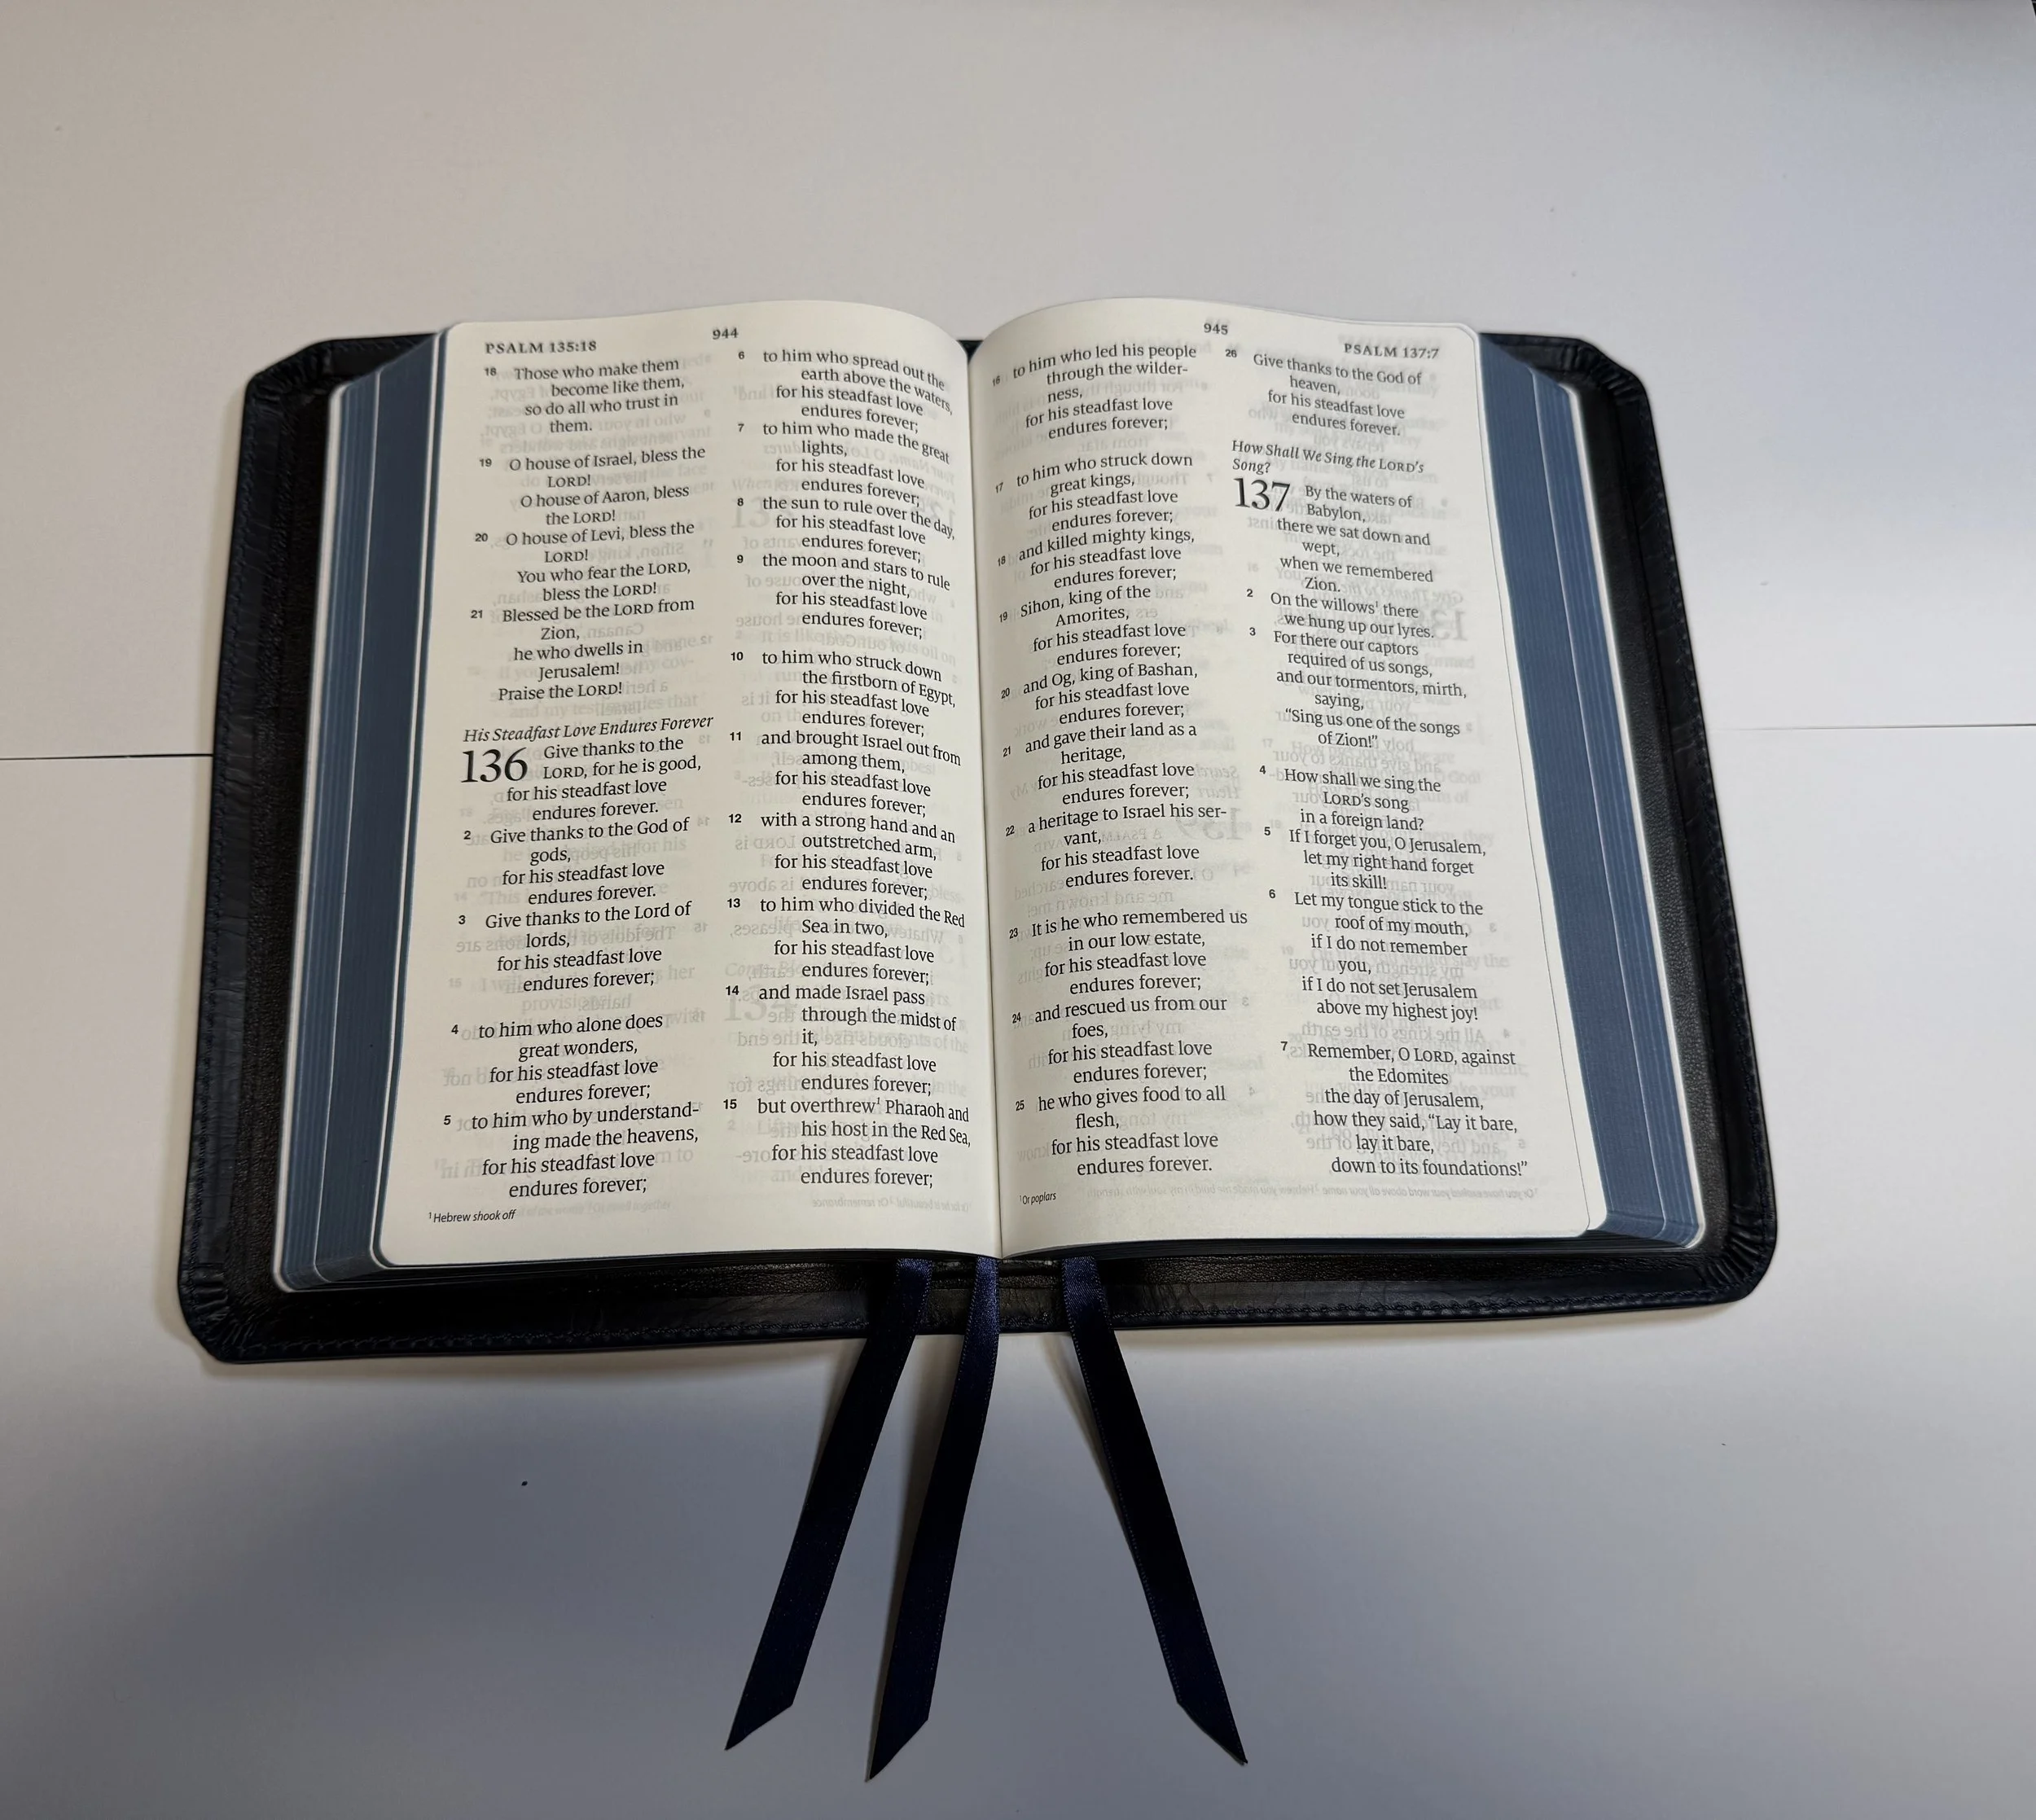 PSALM 135:18
944
18 Those who make them
become like them,
so do all who trust in
them.
19 O house of Israel, bless the
LORD!
O house of Aaron, bless
the LORD!
20 O house of Levi, bless the
LORD!
You who fear the LORD,
bless the LORD!
21 Blessed be the LORD from
Zion,
he who dwells in
Jerusalem!
Praise the LORD!
His Steadfast Love Endures Forever
136 Give thanks to the
LORD, for he is good,
for his steadfast love
endures forever.
2 Give thanks to the God of
gods,
for his steadfast love
endures forever.
3 Give thanks to the Lord of
lords,
for his steadfast love
endures forever;
4 to him who alone does
great wonders,
for his steadfast love
endures forever;
5 to him who by understand-
ing made the heavens,
for his steadfast love
endures forever;
1 Hebrew shook off
6 to him who spread out the
earth above the waters,
for his steadfast love
endures forever;
7 to him who made the great
lights,
for his steadfast love
endures forever;
8 the sun to rule over the day,
for his steadfast love
endures forever;
9 the moon and stars to rule
over the night,
for his steadfast love
endures forever;
10 to him who struck down
the firstborn of Egypt,
for his steadfast love
endures forever;
11 and brought Israel out from
among them,
for his steadfast love
endures forever;
12 with a strong hand and an
outstretched arm,
for his steadfast love
endures forever;
13 to him who divided the Red
Sea in two,
for his steadfast love
endures forever;
14 and made Israel pass
through the midst of
it,
for his steadfast love
endures forever;
15 but overthrew¹ Pharaoh and
his host in the Red Sea,
for his steadfast love
endures forever;
945
PSALM 137:7
16 to him who led his people
through the wilder-
ness,
for his steadfast love
endures forever;
17 to him who struck down
great kings,
for his steadfast love
endures forever;
18 and killed mighty kings,
for his steadfast love
endures forever;
19 Sihon, king of the
Amorites,
for his steadfast love
endures forever;
20 and Og, king of Bashan,
for his steadfast love
endures forever;
21 and gave their land as a
heritage,
for his steadfast love
endures forever;
22 a heritage to Israel his ser-
vant,
for his steadfast love
endures forever.
23 It is he who remembered us
in our low estate,
for his steadfast love
endures forever;
24 and rescued us from our
foes,
for his steadfast love
endures forever;
25 he who gives food to all
flesh,
for his steadfast love
endures forever.
1 Or poplars
26 Give thanks to the God of
heaven,
for his steadfast love
endures forever.
How Shall We Sing the LORD's
Song?
137 By the waters of
Babylon,
there we sat down and
wept,
when we remembered
Zion.
2 On the willows¹ there
we hung up our lyres.
3 For there our captors
required of us songs,
and our tormentors, mirth,
saying,
“Sing us one of the songs
of Zion!”
4 How shall we sing the
LORD's song
in a foreign land?
5 If I forget you, O Jerusalem,
let my right hand forget
its skill!
6 Let my tongue stick to the
roof of my mouth,
if I do not remember
you,
if I do not set Jerusalem
above my highest joy!
7 Remember, O LORD, against
the Edomites
the day of Jerusalem,
how they said, “Lay it bare,
lay it bare,
down to its foundations!”